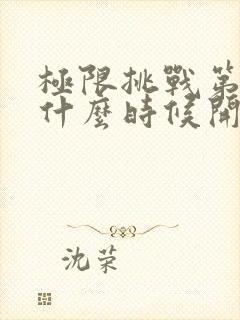 極限挑戰第
什麼時候開
沈荣